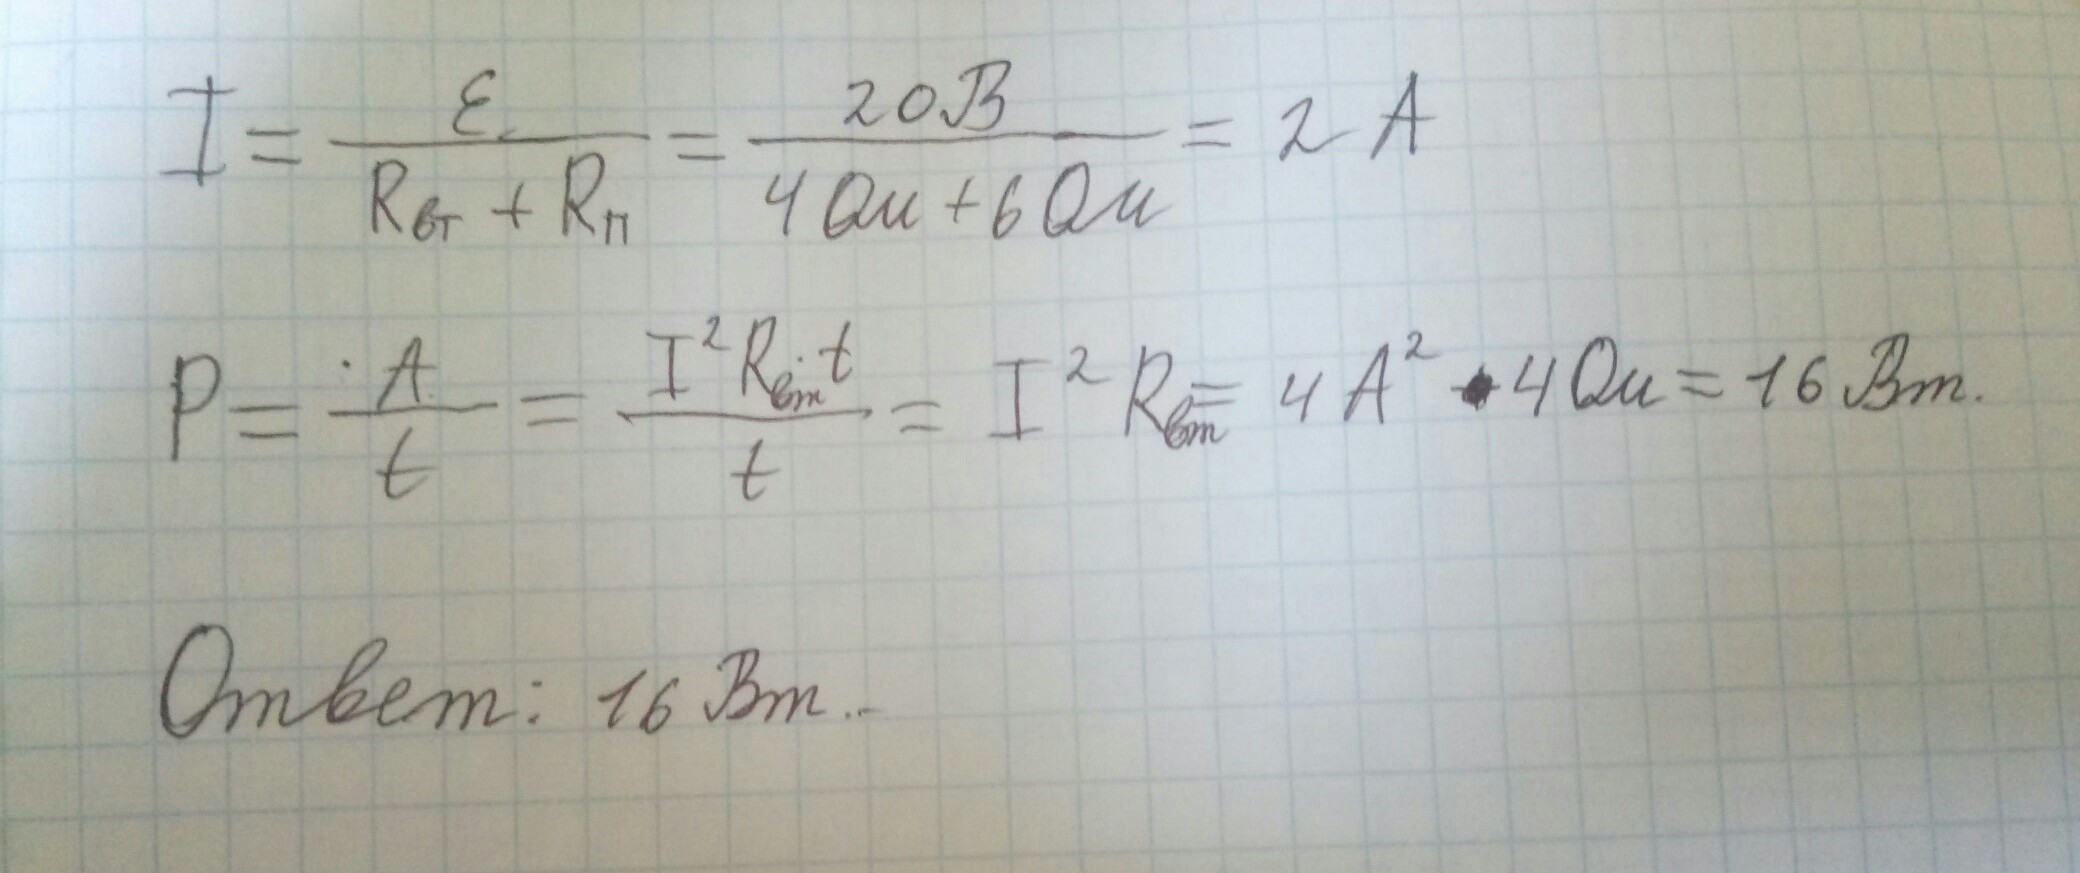 I = ε / (Rвт + Rп) = 20В / (4 Ом + 6 Ом) = 2 А
P = A / t = I² Rвт t / t = I² Rвт = 4 А² · 4 Ом = 16 Вт.
Ответ: 16 Вт.